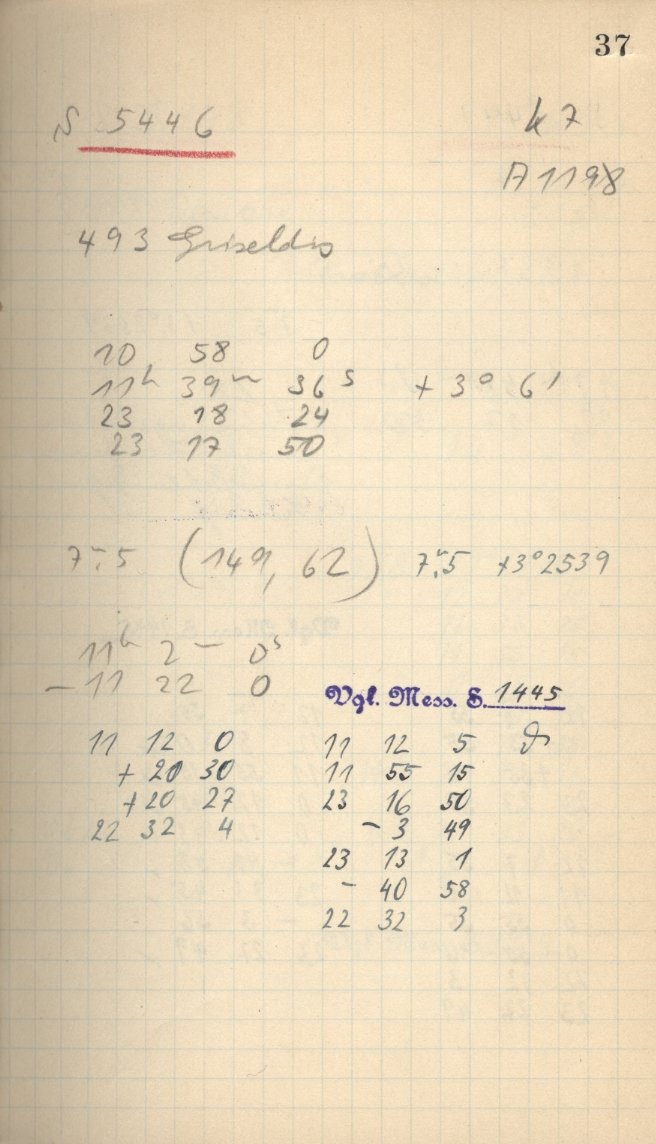 37
S 5446
k 7
A 1198
493 Griseldis
10 58 0
11h 39m 36s + 3° 6'
23 18 24
23 17 50
7m.5 (149, 62) 7m.5 +3°2539
11h 2m 0s
– 11 22 0
Vgl. Mess. S. 1445
11 12 0
+ 20 30
+ 20 27
22 32 4
11 12 5
11 55 15
23 16 50
– 3 49
23 13 1
– 40 58
22 32 3